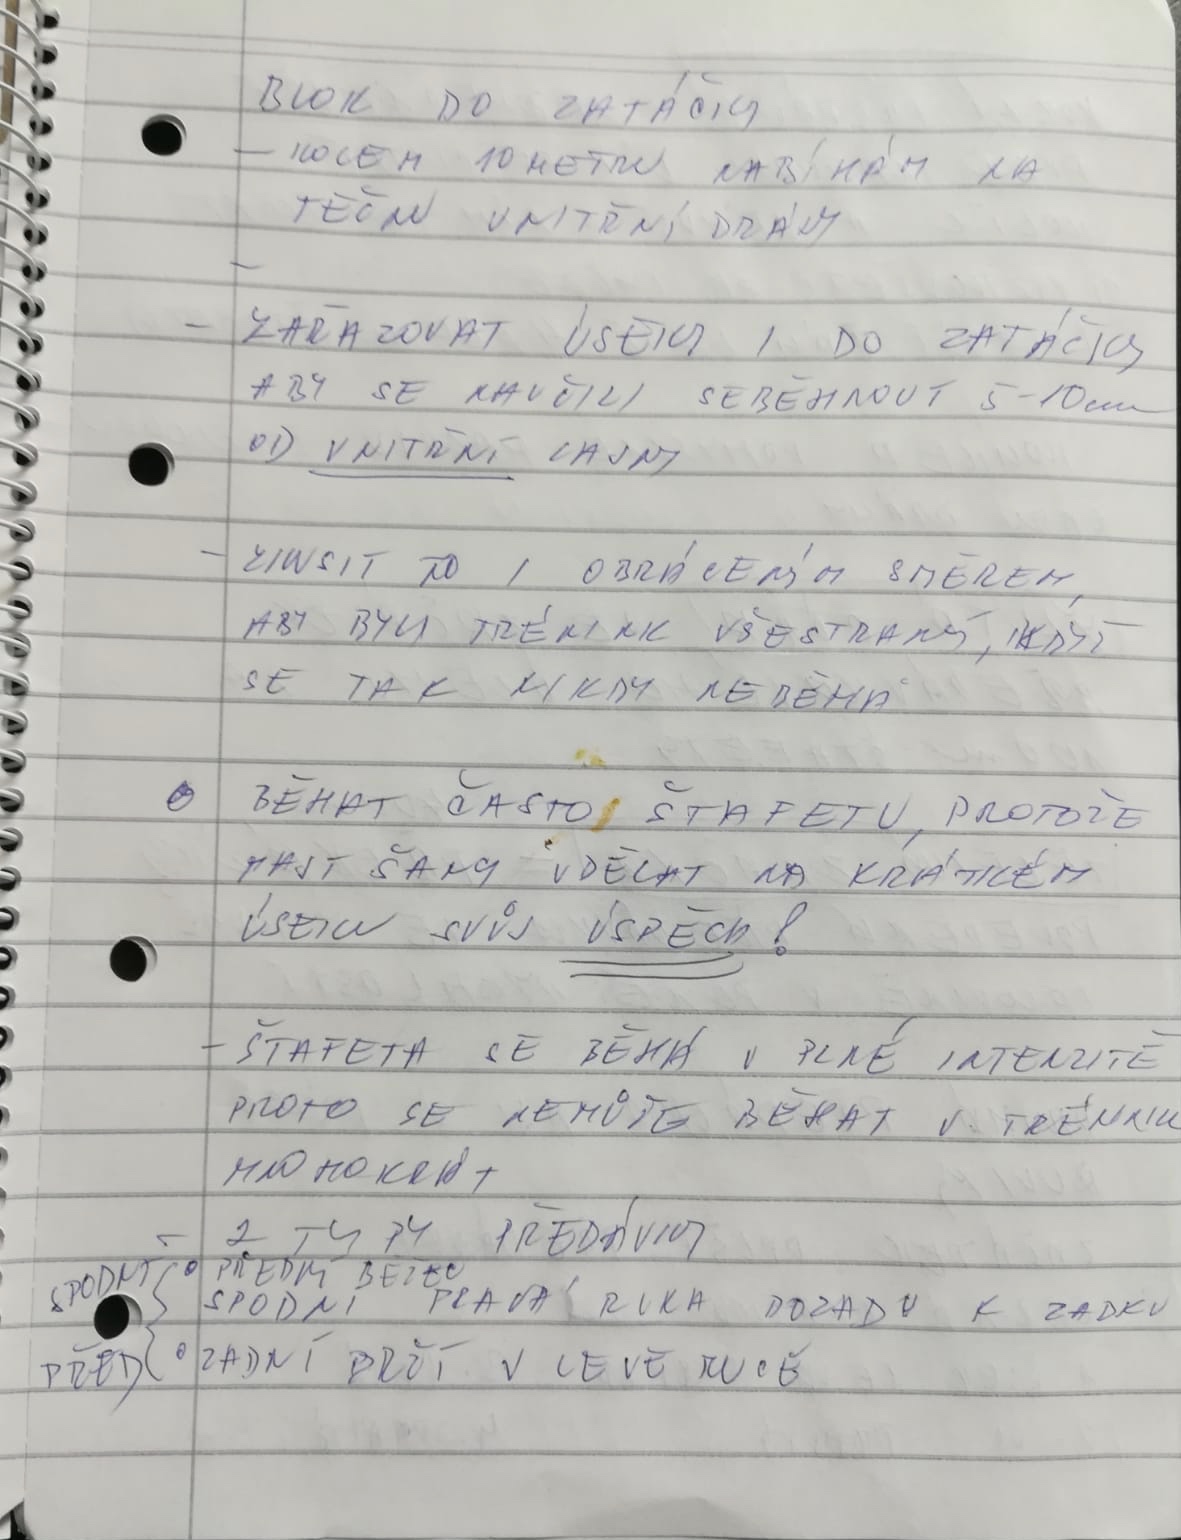 BLOK DO ZATÁČKY
- KOLEM 10 METRU NABÍHÁM NA
TEČNU VNITŘNÍ DRÁHY
-
- ZAŘAZOVAT ÚSEKY I DO ZATÁČKY
ABY SE NAUČILI SEBĚHNOUT 5-10cm
OD VNITŘNÍ LAJNY
- ZKUSIT TO I OBRÁCENÝM SMĚREM,
ABY BYL TRÉNINK VŠESTRANÝ, IKDYŽ
SE TAK NIKDY NEBĚHÁ
BĚHAT ČASTO ŠTAFETU, PROTOŽE
MAJÍ ŠANCI UDĚLAT NA KRÁTKÉM
ÚSEKU SVŮJ ÚSPĚCH!
- ŠTAFETA SE BĚHÁ V PLNÉ INTENZITĚ
PROTO SE NEMŮŽE BĚHAT V TRÉNINKU
MNOHOKRÁT
- 2 TYPY PŘEDÁVKY
PŘEDNÍ BEŽEC
SPODNÍ PRAVÁ RUKA DOZADU K ZADKU
SPODNÍ
PŘED
ZADNÍ DRŽÍ V LEVÉ RUCE